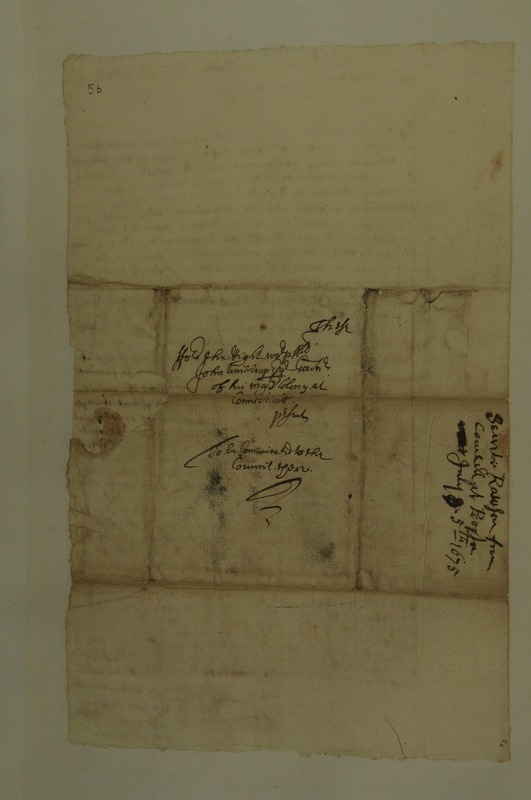 5b
These
ffor the Right worpfll
John Winthrop Esqr Gour
of his majts Colony at
Connecticott
present
To be Communicated to the
Council there.
Rawson from
Council at Boston
July 5th 1675